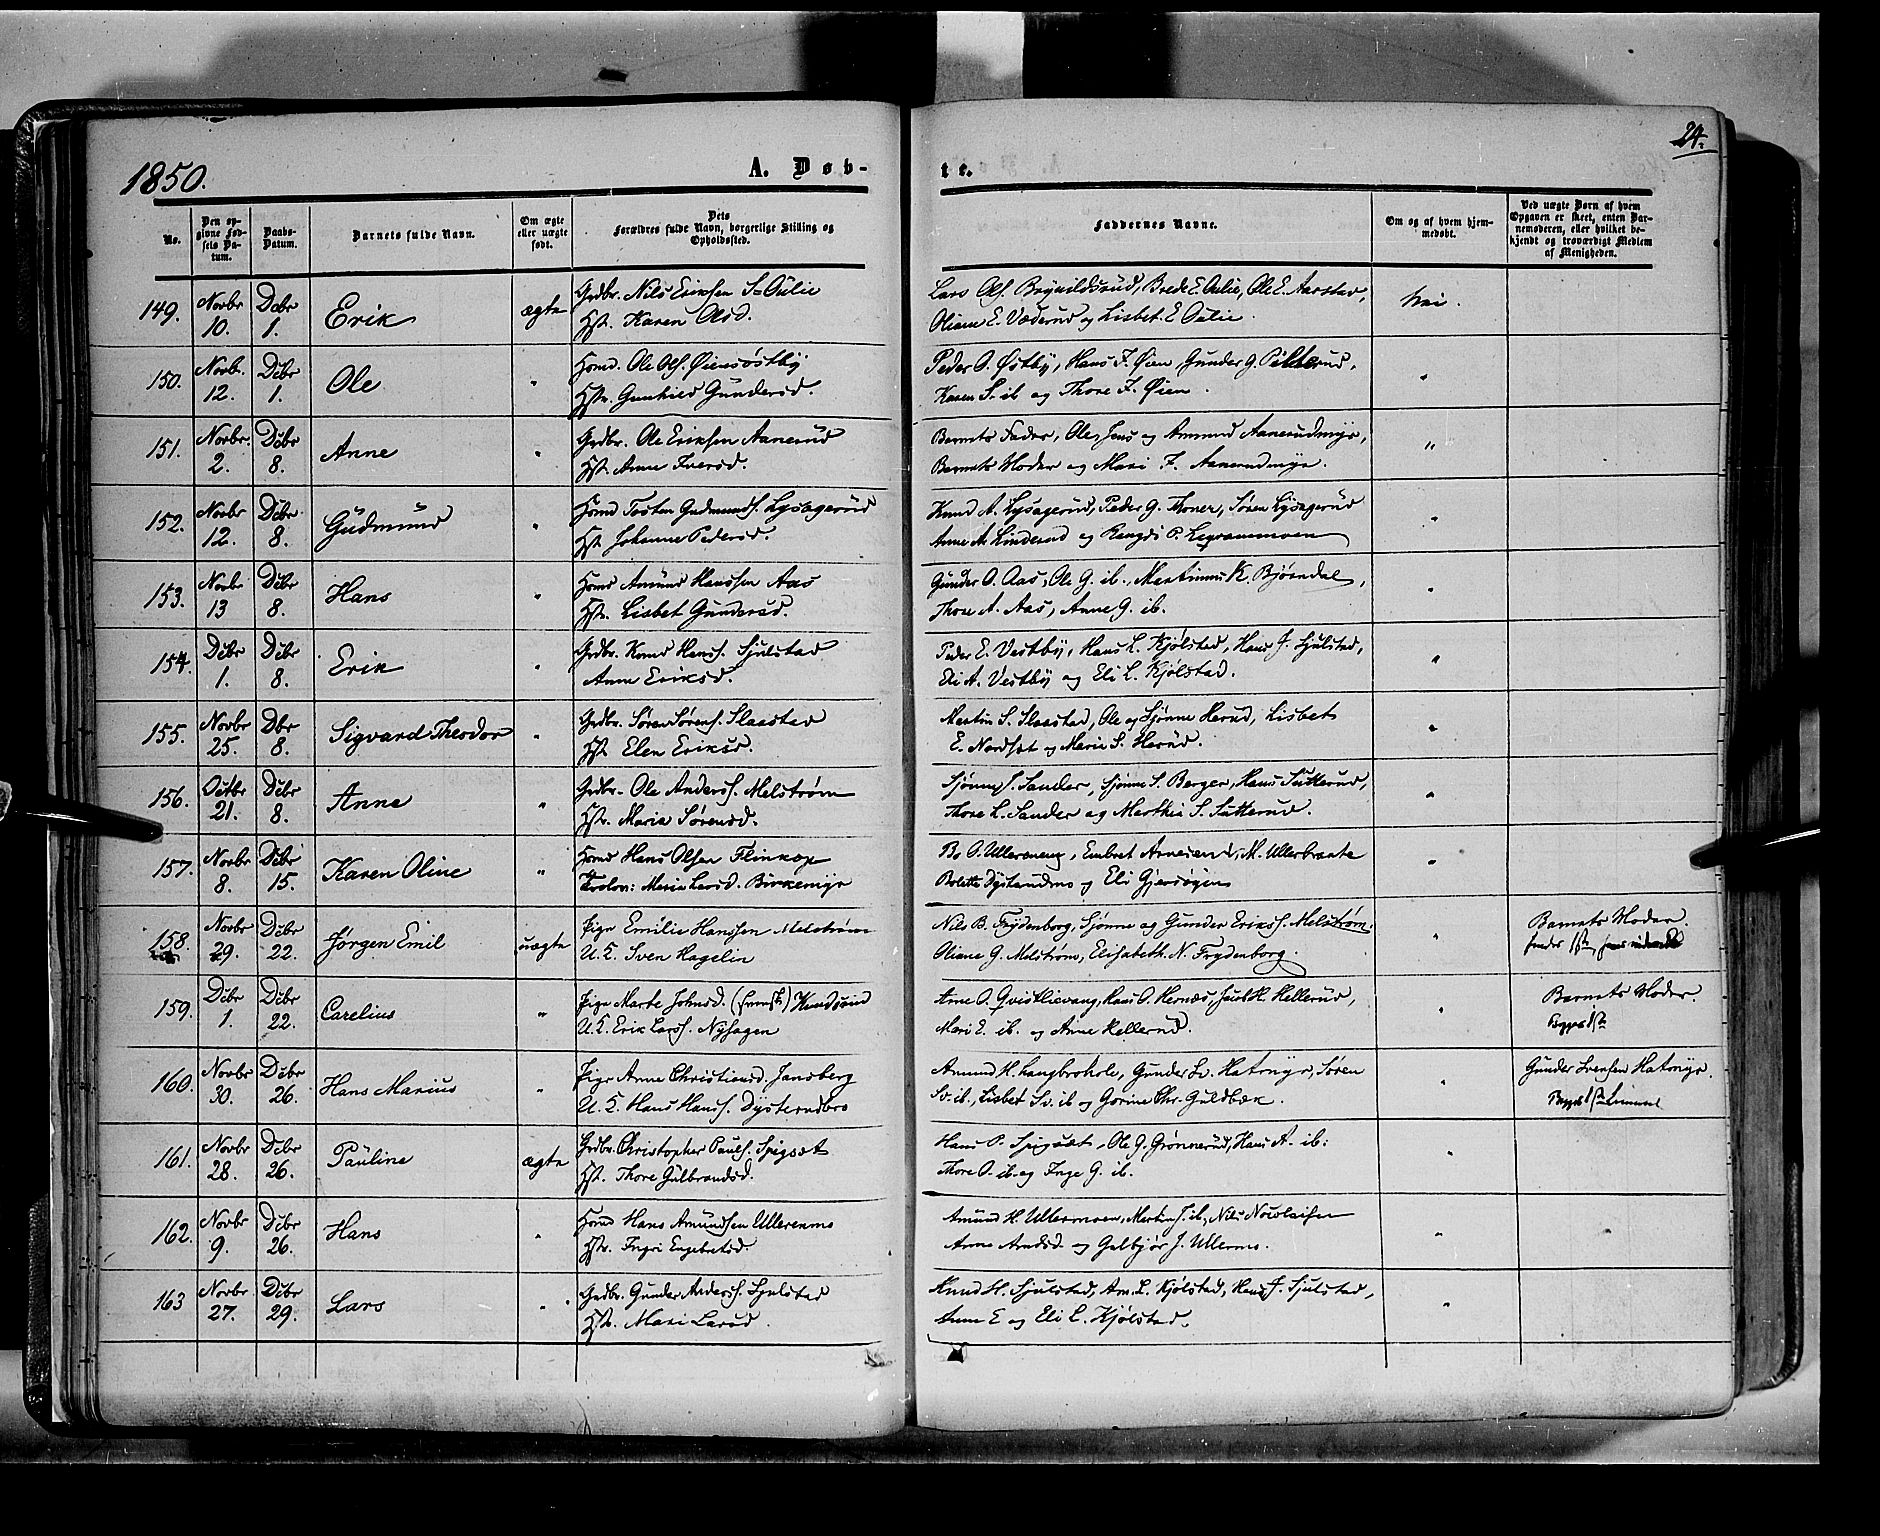 24.
1850.
A. Døb-
te.
No.
Den opgivne Fødsels Datum.
Daabs-Datum.
Barnets fulde Navn.
Om ægte eller uægte født.
Dets Forældres fulde Navn, borgerlige Stilling og Opholdssted.
Faddernes Navne.
Om og af hvem hjemmedøbt.
Ved uægte Børn af hvem Opgaven er skeet, enten Barnemoderen, eller hvilket bekjendt og troværdigt Medlem af Menigheden.
149. Novbr 10. Dcbr 1. Erik ægte Grdbr. Nils Eriksen S-Oulie
Hst. Karen Olsd.
Lars Ols. Brynildsrud, Brede E. Oulie, Ole E. Aarstad,
Oliane E. Væderud og Lisbet E Oulie.
Nei.
150. Novb. 12. Dcbr 1. Ole " Hsmd. Ole Ols. Øiensøstby
Hst. Gunhild Gundersd.
Peder O. Østby, Hans F. Øien, Gunder G. Pilterud,
Karen S. ib og Thore F. Øien.
"
151. Novbr. 2. Dcbr 8. Anne " Grdbr. Ole Eriksen Aanerud
Hst. Anne Iversd.
Barnets Fader, Ole, Jens og Amund Aanerudmyr,
Barnets Moder og Mari F. Aanerudmyr.
"
152. Novbr 12. Dcbr 8. Gudmund " Hsmd Tosten Gudmunds. Lysagerud
Hst. Johanne Pedersd.
Knud A. Lysagerud, Peder G. Thoner, Søren Lysagerud
Anne A. Linderud og P.
"
153. Novbr 13 Dcbr 8. Hans " Hsmd Amund Hanssen Aas
Hst. Lisbet Gundersd.
Gunder O. Aas, Ole G. ib., Martinus K. Bjørndal,
Thore A. Aas, Anne G. ib.
"
154. Dcbr 1. Dcbr 8. Erik " Grdbr. Knud Hans. Sjulstad
Anne Eriksd.
Peder E. Vestby, Hans L. Kjølstad, Hans J. Sjulstad,
Eli A. Vestby og Eli L. Kjølstad.
"
155. Novbr 25. Dbr 8. Sigvard Theodor " Grdbr. Søren Sørens. Slaastad
Hst. Elen Eriksd.
Martin S. Slaastad, Ole og Sjønne Herud, Lisbet
E. Nordset og Marie S. Herud.
"
156. Octbr 21. Dcbr 8. Anne " Grdbr. Ole Anders. Melstrøm
Hst. Maria Sørensd.
Sjønne S. Sander, Sjønne S. Berger, Hans Sutterud,
Thore L. Sander og Marthia S. Sutterud.
"
157. Novbr 8. Dcbr 15. Karen Oline " Hsmd Hans Olsen Flinkop
Trolov: Maria Larsd. Birkemyr
Bo O. Ullereneng, Embret Arnesen, M. Ullerbraate
og Eli Gjersøyen
"
158. Novbr 29. Dcbr 22. Jørgen Emil uægte Pige Emilie Hanssen Melstrøm
U.K. Sven Hagelin
Nils B. Frydenborg, Sjønne og Gunder Eriks. Melstrøm.
Oliane G. Melstrøm, Elisabeth. N. Frydenborg.
"
Barnets Moder.
159. Dcbr 1. Dcbr 22. Carelius " Pige Marte Johnsd. Knudsrud
U.K. Erik Lars. Nysagen
Arne O. Qvistlievang, Hans O. Hernæs, H. Hellerud,
Mari E. ib. og Anne Hellerud.
"
Barnets Moder.
160. Novbr 30. Dcbr 26. Hans Marius " Pige Anne Christiansd. Jansberg
U.K. Hans Hans. Dysterudbro
Amund H. Langbrohole, Gunder Sv. Hatmyr, Søren
Sv. ib., Lisbet Sv. ib og Gorine Chr. Guldbæk.
"
Gunder Svensen Hatmyr.
161. Novbr 28. Dcbr 26. Pauline ægte Grdbr. Christopher Pauls. Spigset
Hst. Thore Gulbrandsd.
Hans P. Spigset, Ole G. Grønnerud, Hans A. ib:
Thore O. ib. og Inge G. ib.
"
162. Novbr 9. Dcbr 26. Hans " Hsmd Hans Amundsen Ullerenmo
Hst. Ingri Engebretsd.
Amund H. Ullermoen, Martin J. ib, Nils Nicolaisen
Anne Arnesd. og Gulbjør J. Ullermo.
"
163 Novbr 27. Dcbr 29. Lars " Grdbr. Gunder Anders. Sjulstad
Hst. Mari Larsd.
Knud H. Sjulstad, Am. L. Kjølstad, Hans J. Sjulstad,
Anne E og Eli L. Kjølstad.
"